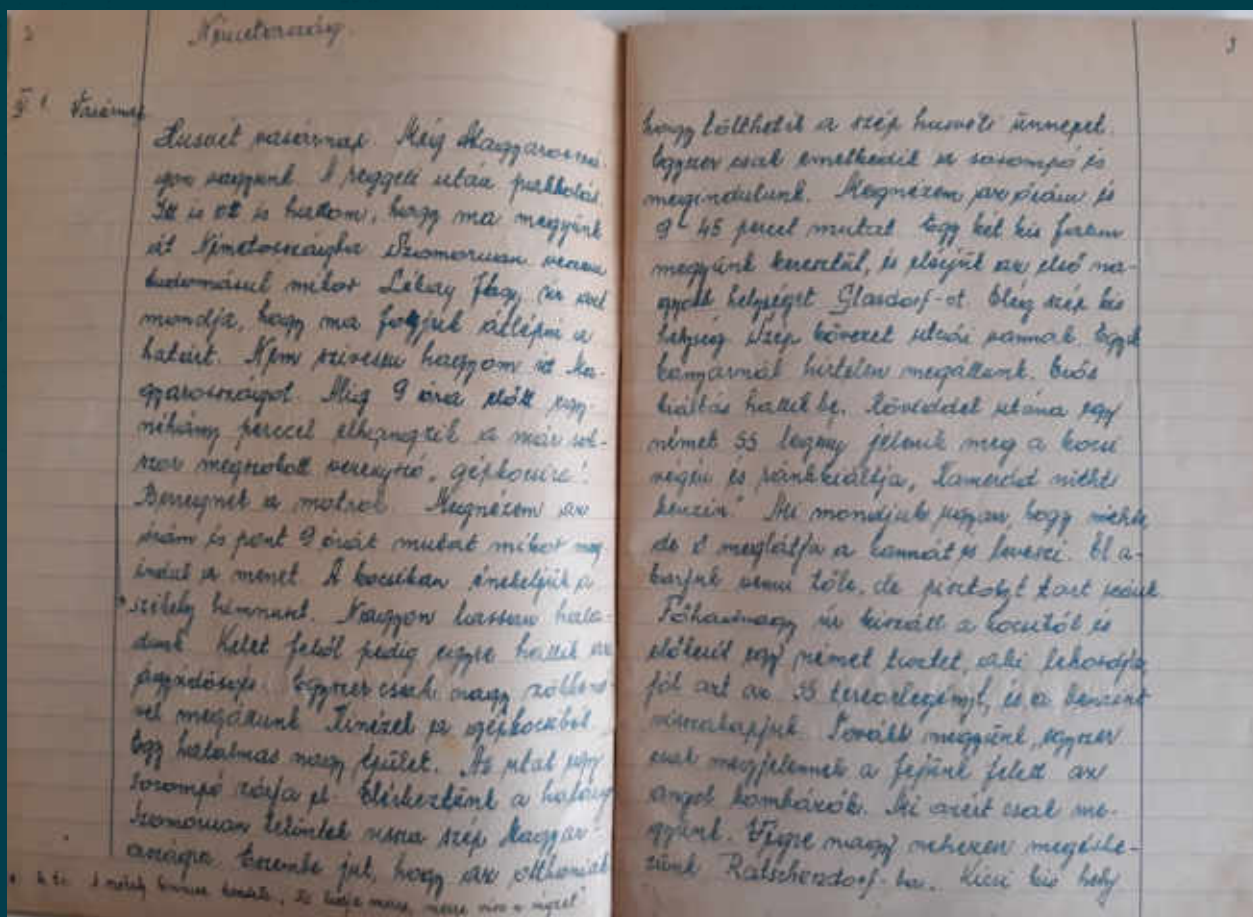 2
Németország.
IV 1. Vasárnap
Husvét vasárnap. Még Magyarorszá-
gon vagyunk. A reggeli után pakkolás.
Itt is ott is hallom, hogy ma megyünk
át Németországba. Szomoruan veszem
tudomásul mikor Lékay Nagy úr azt
mondja, hogy ma fogjuk átlépni a
határt. Nem szivesen hagyom itt Ma-
gyarországot. Még 9 óra előtt egy-
néhány perccel elhangzik a már sok-
szor megszokott vezényszó, gépkocsira!
Beregnek a motrok. Megnézem az
órám és pont 9 órát mutat mikor meg
indul a menet. A kocsikban énekeljük a
székely himnuszt. Nagyon lassan hala-
dunk. Kelet felől pedig egyre hallik az
ágyúdörgés. Egyszer csak nagy zökkenés-
vel megállunk. Kinézek a gépkocsiból
Egy hatalmas nagy épület. Az utat egy
sorompó zárja el. Elérkeztünk a határig
Szomoruan tekintek vissza szép Magyar-
országra. Eszembe jut, hogy az otthoniak
3
hogy tölthetik a szép husvéti ünnepet.
Egyszer csak emelkedik a sorompó és
megindulunk. Megnézem az órám és
9 h 45 percet mutat. Egy két kis falun
megyünk keresztül, és elérjük az első na-
gyobb helységet Glasdorf-ot. Elég szép kis
helység. Szép kövezet utcái vannak. Egyik
kanyarnál hirtelen megállunk. Erős
kiáltás hallik be. Röviddel utána egy
német SS legény jelenik meg a kocsi
végén és ránk kiáltja, Kamerád nichts
benzin." Mi mondjuk ugyan, hogy nichts
de ő meglátja a kannát és leveszi. El a-
karjuk venni tőle, de pisztolyt tart reánk.
Főhadnagy úr kiszáll a kocsiból és
előkerül egy német tisztet, aki lehordja
jól azt az SS terrorlegényt, és a benzint
visszakapjuk. Tovább megyünk, egyszer
csak megjelennek a fejünk felett az
angol bombázók. Mi azért csak me-
gyünk. Végre nagy nehezen megérke-
zünk Ratschendorf-ba. Kicsi kis hely